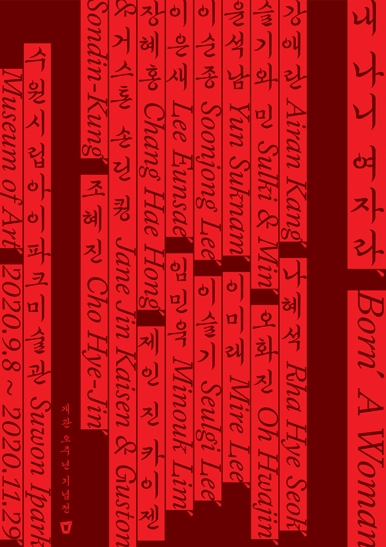 내 나니 여자라
Born' A Woman
강애란 Airan Kang
나혜석 Rha Hye Seok
슬기와 민 Sulki & Min
오화진 Oh Hwajin
윤석남 Yun Suknam
이미래 Mire Lee
이순종 Soonjong Lee
이슬기 Seulgi Lee
이은새 Lee Eunsae
임민욱 Minouk Lim
장혜홍 Chang Hae Hong
제인 진 카이젠
& 거스톤 손딘 퀑 Jane Jin Kaisen & Guston
Sondin-Kung
조혜진 Cho Hye-Jin
개관 오주년 기념전
수원시립아이파크미술관 Suwon Ipark
Museum of Art 2020.9.8 ~ 2020.11.29